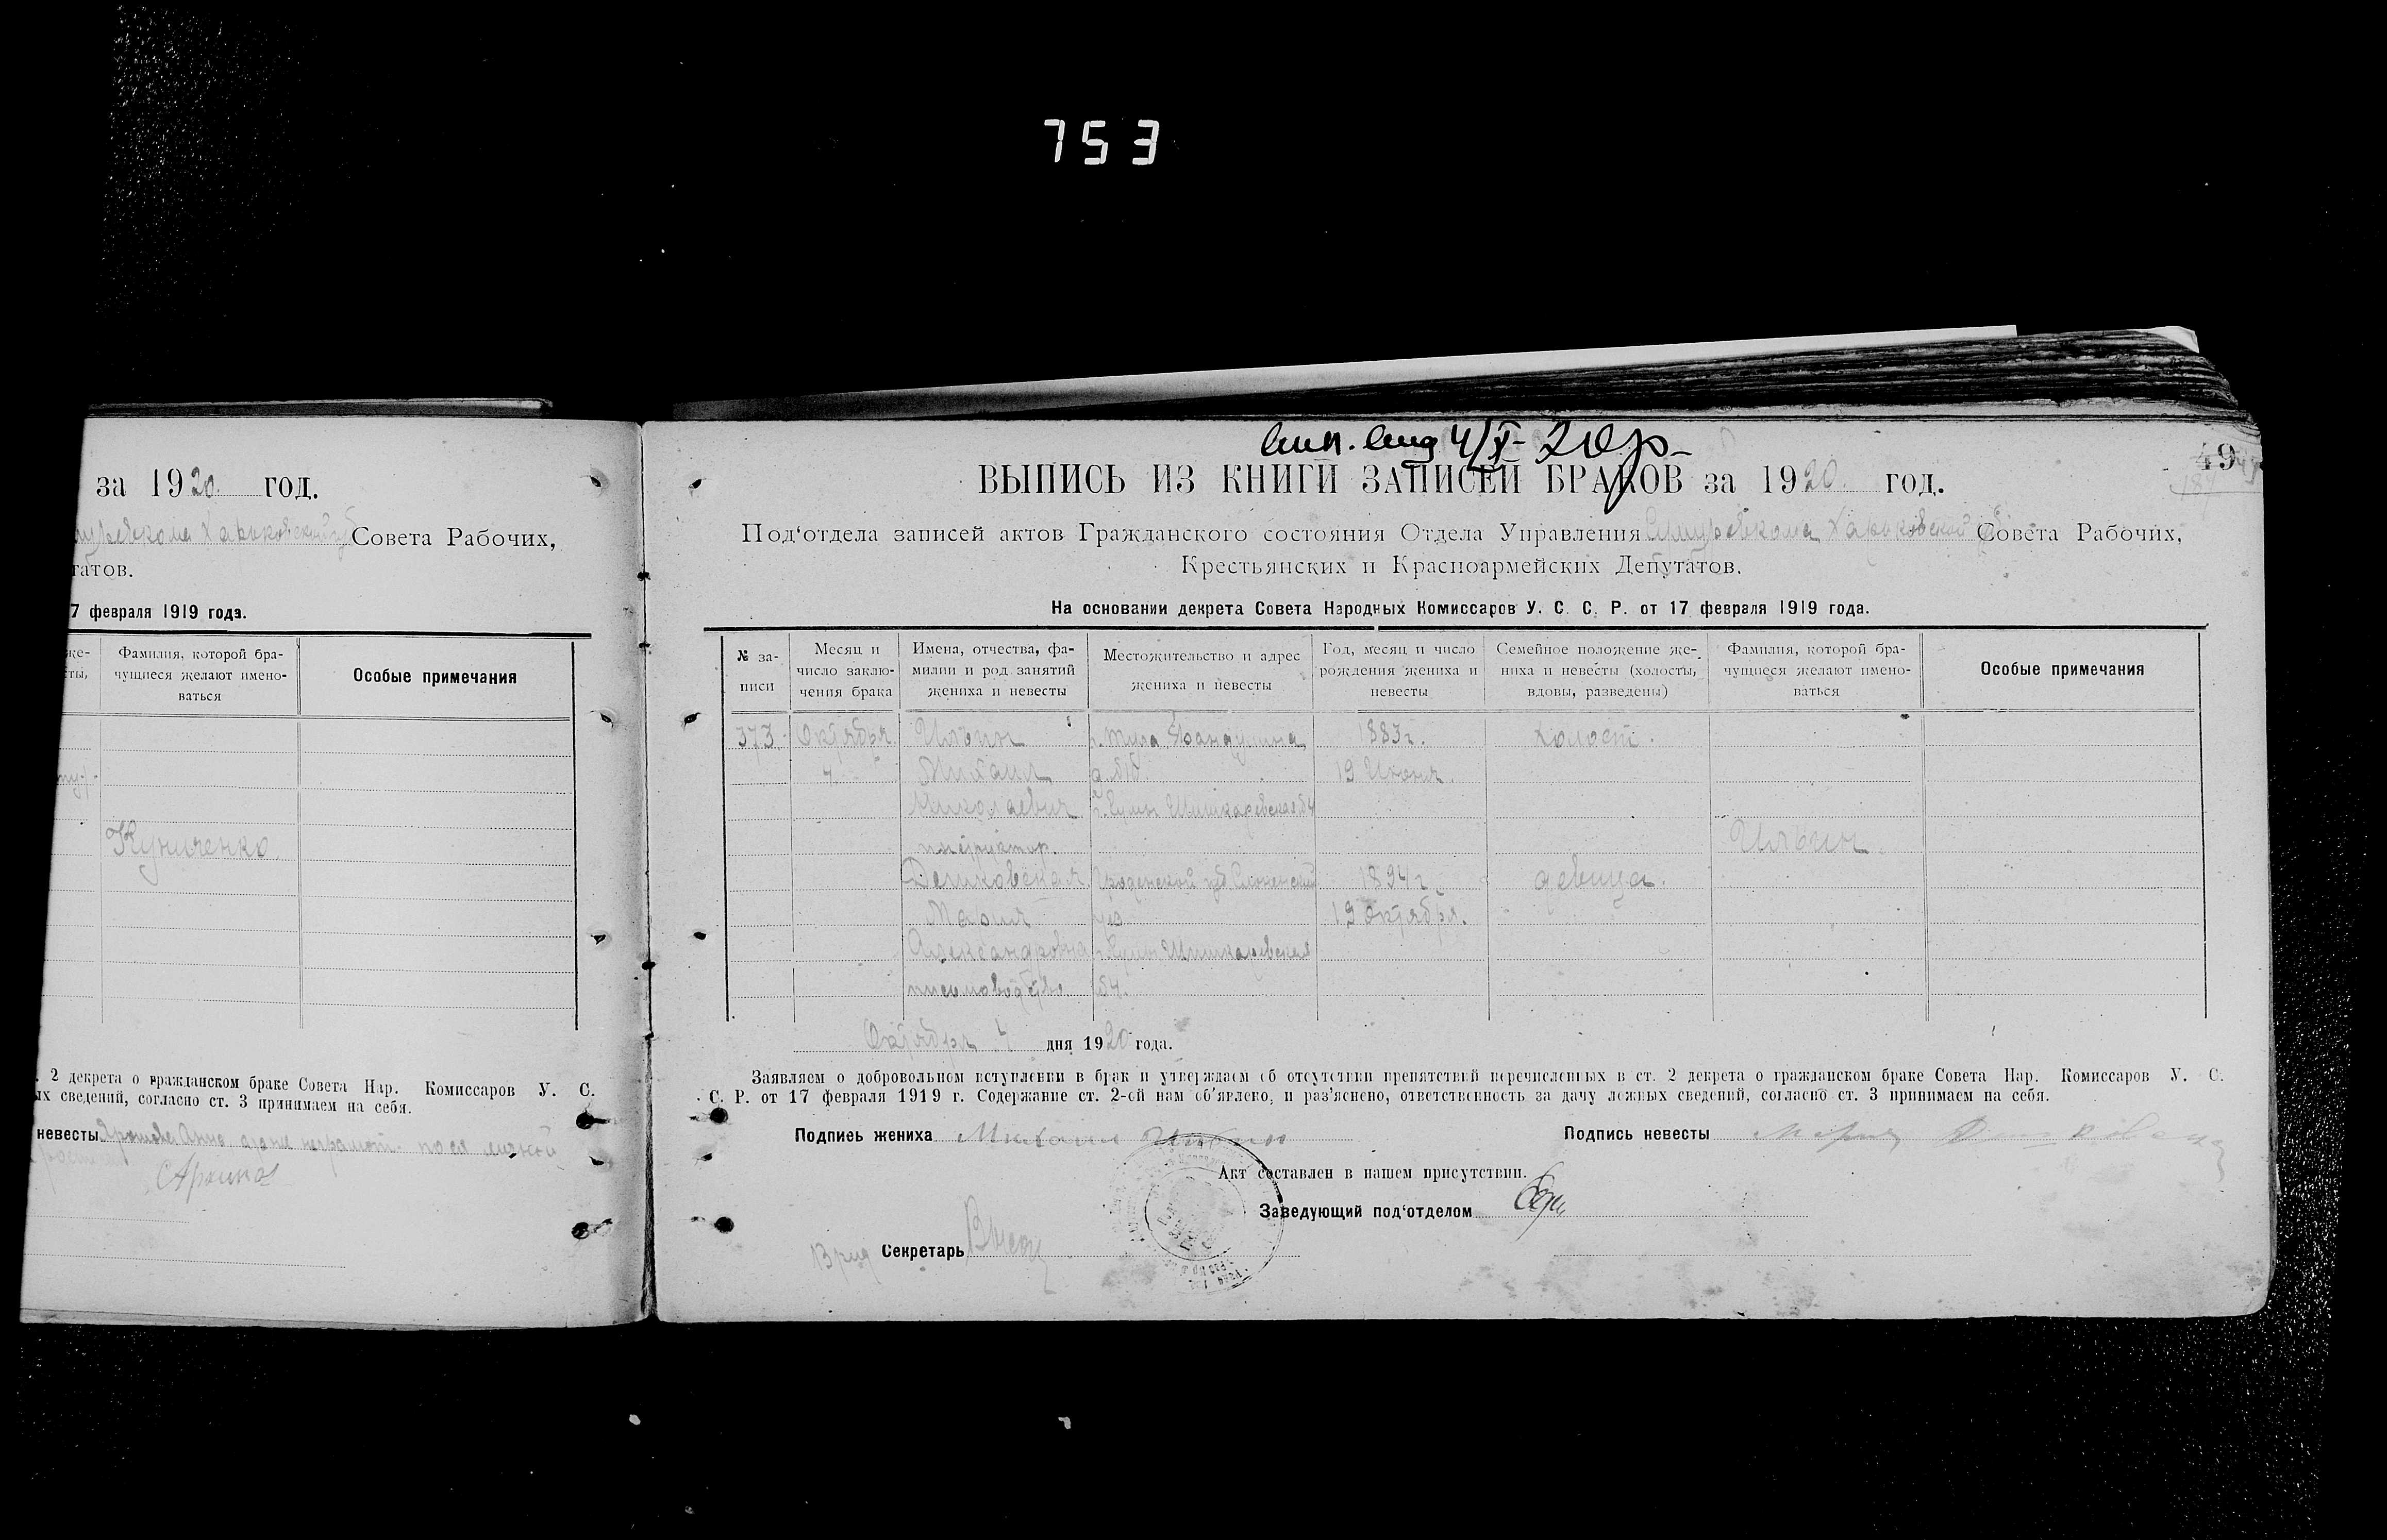 753
за 1920 год.
Совета Рабочих,
татов.
7 февраля 1919 года.
же-
сты,
Фамилия, которой бра-
чущиеся желают имено-
ваться
Особые примечания
Куниченко.
. 2 декрета о гражданском браке Совета Нар. Комиссаров У. С.
ых сведений, согласно ст. 3 принимаем на себя.
невесты Анна
4/X - 20 р -
49
ВЫПИСЬ ИЗ КНИГИ ЗАПИСЕЙ БРАКОВ за 1920 год.
Под‘отдела записей актов Гражданского состояния Отдела Управления Сумуревкома Харьковской Совета Рабочих,
Крестьянских и Красноармейских Депутатов.
На основании декрета Совета Народных Комиссаров У. С. С. Р. от 17 февраля 1919 года.
№ за-
писи
Месяц и
число заклю-
чения брака
Имена, отчества, фа-
милии и род занятий
жениха и невесты
Местожительство и адрес
жениха и невесты
Год, месяц и число
рождения жениха и
невесты
Семейное положение же-
ниха и невесты (холосты,
вдовы, разведены)
Фамилия, которой бра-
чущиеся желают имено-
ваться
Особые примечания
373. Октября Ильин г. Тула 1883 г. холост.
4 Михаил 19 Июня.
Николаевич г. Сумы Шишкаревская 54
инструктор. Ильин.
Дешковская Гроденской губ Слонимский 1894 г. девица.
Мария уез 19 октября.
Александровна г. Сумы Шишкаревская
письмоводство 54.
Октября 4 дня 1920 года.
Заявляем о добровольном вступлении в брак и утверждаем об отсутствии препятствий перечисленных в ст. 2 декрета о гражданском браке Совета Нар. Комиссаров У. С.
С. Р. от 17 февраля 1919 г. Содержание ст. 2-ой нам об‘явлено, и раз‘яснено, ответственность за дачу ложных сведений, согласно ст. 3 принимаем на себя.
Подпись жениха Михаил Ильин Подпись невесты Мария Дешковская
Акт составлен в нашем присутствии.
Заведующий под‘отделом
Врид Секретарь